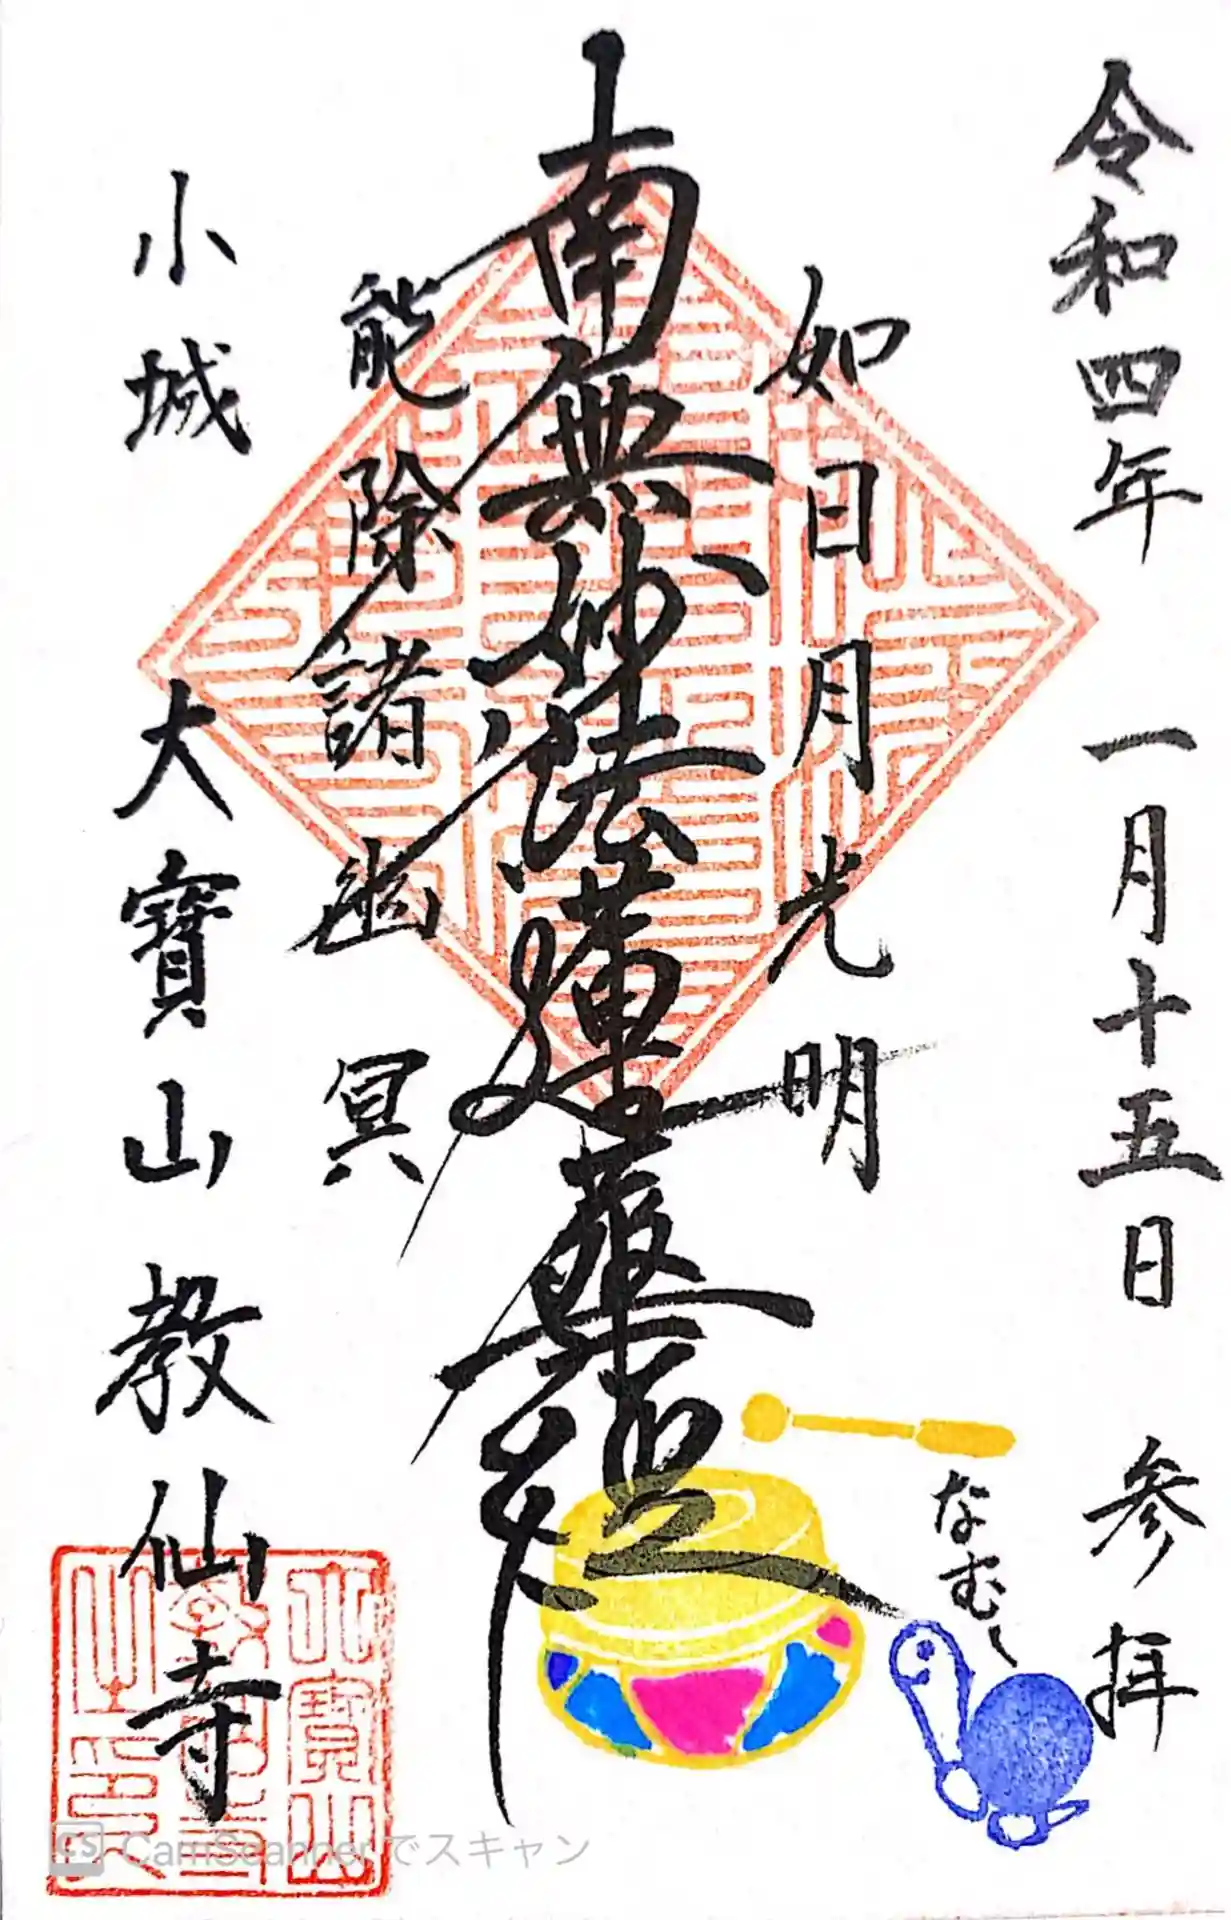 令和四年 一月十五日 参拝
如日月光明
南無妙法蓮華経
能除諸幽冥
小城 大寶山 教仙寺
なむ〱
CS CamScannerでスキャン